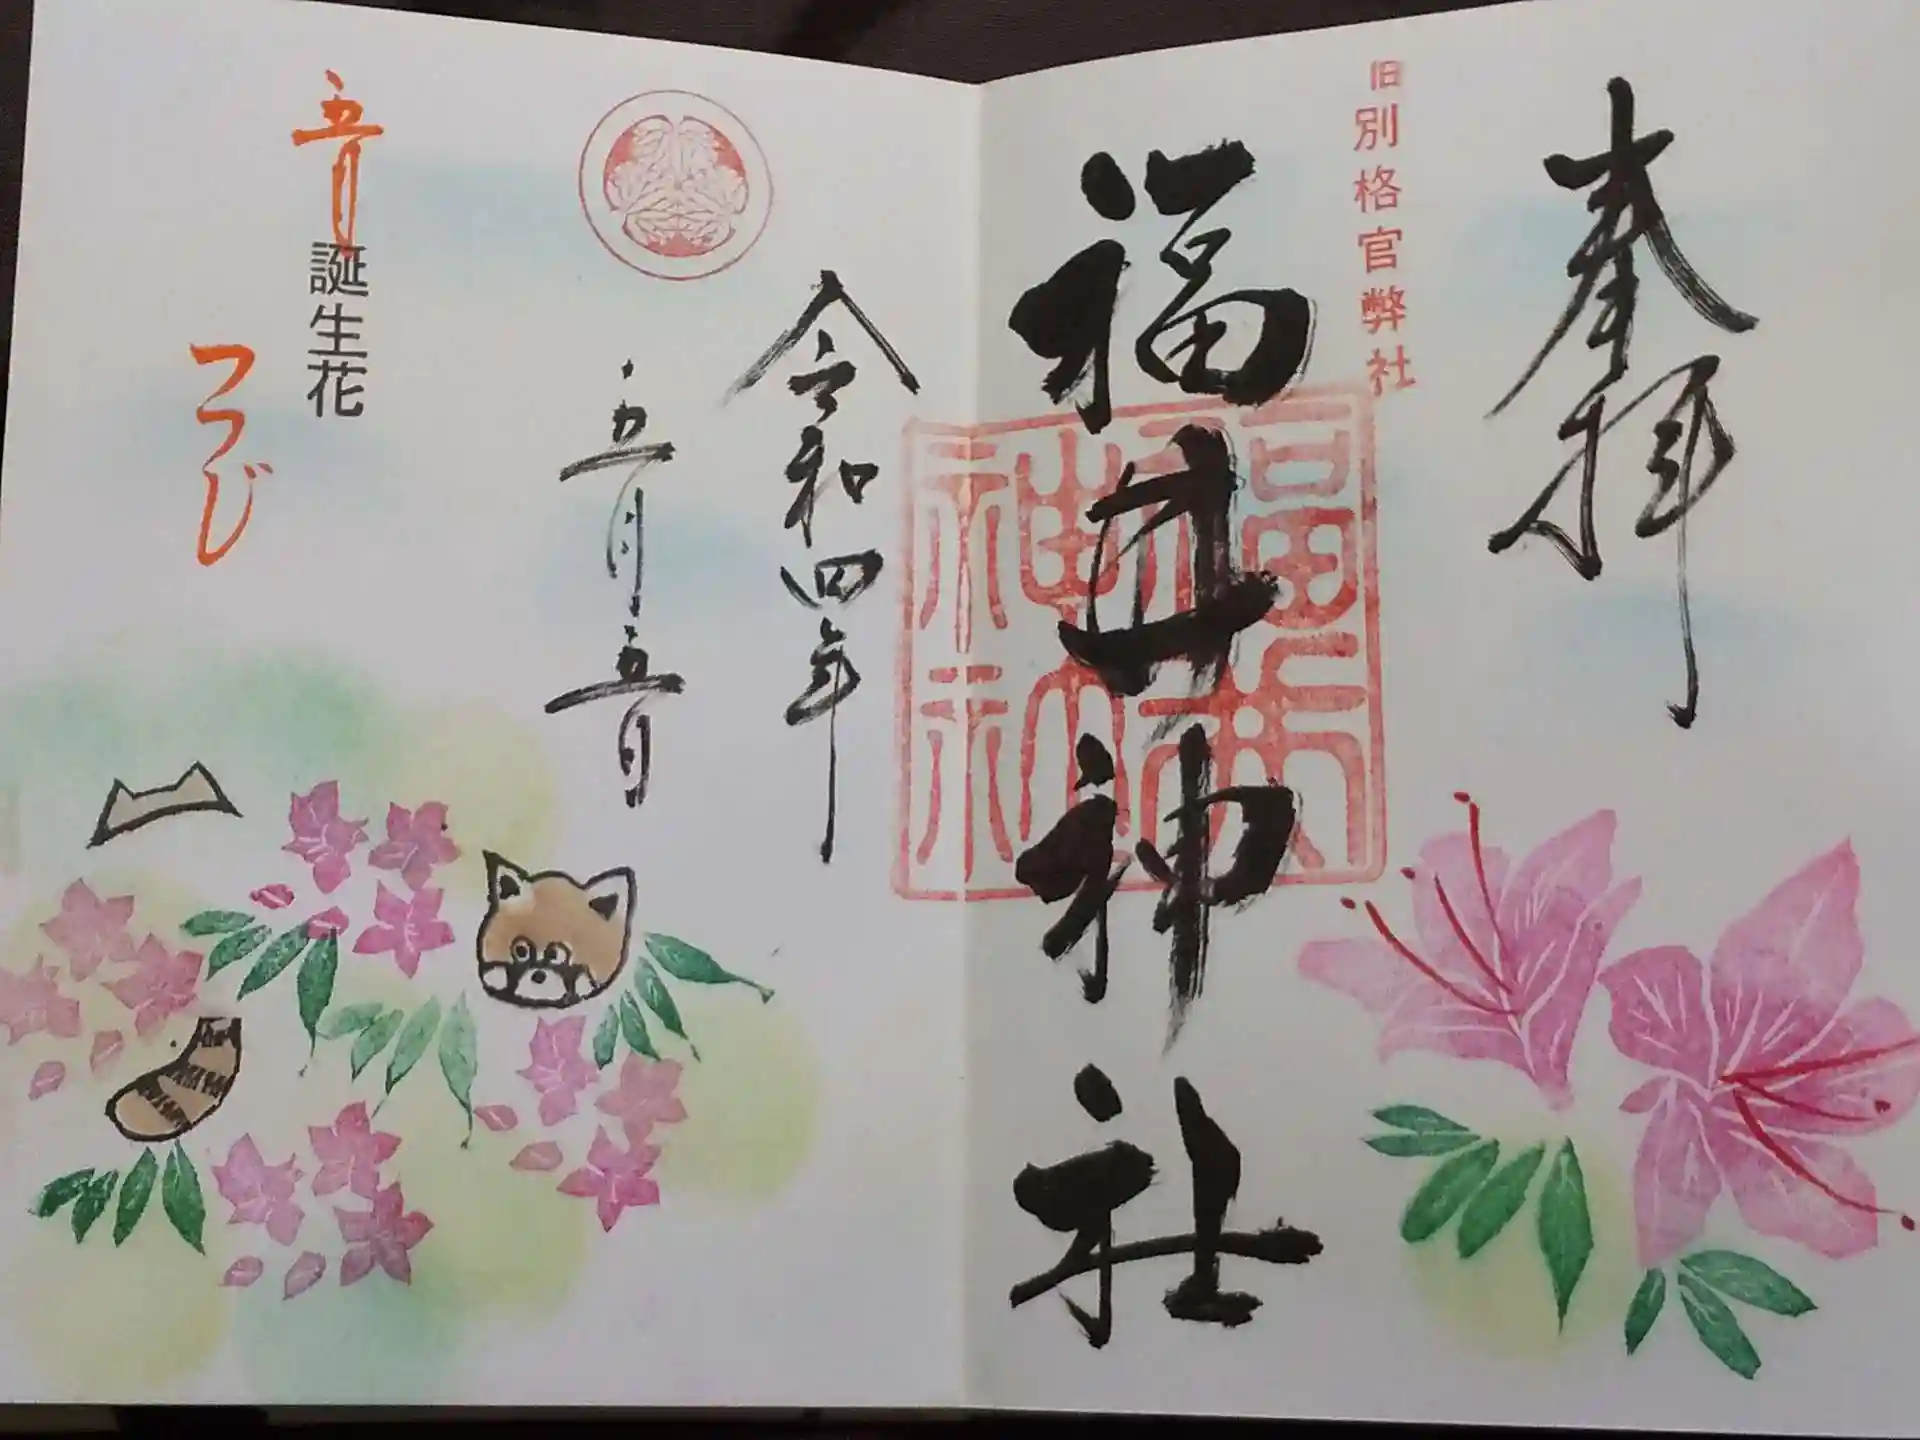 奉拝
旧別格官弊社
福井神社
令和四年
五月五日
五月誕生花
つつじ